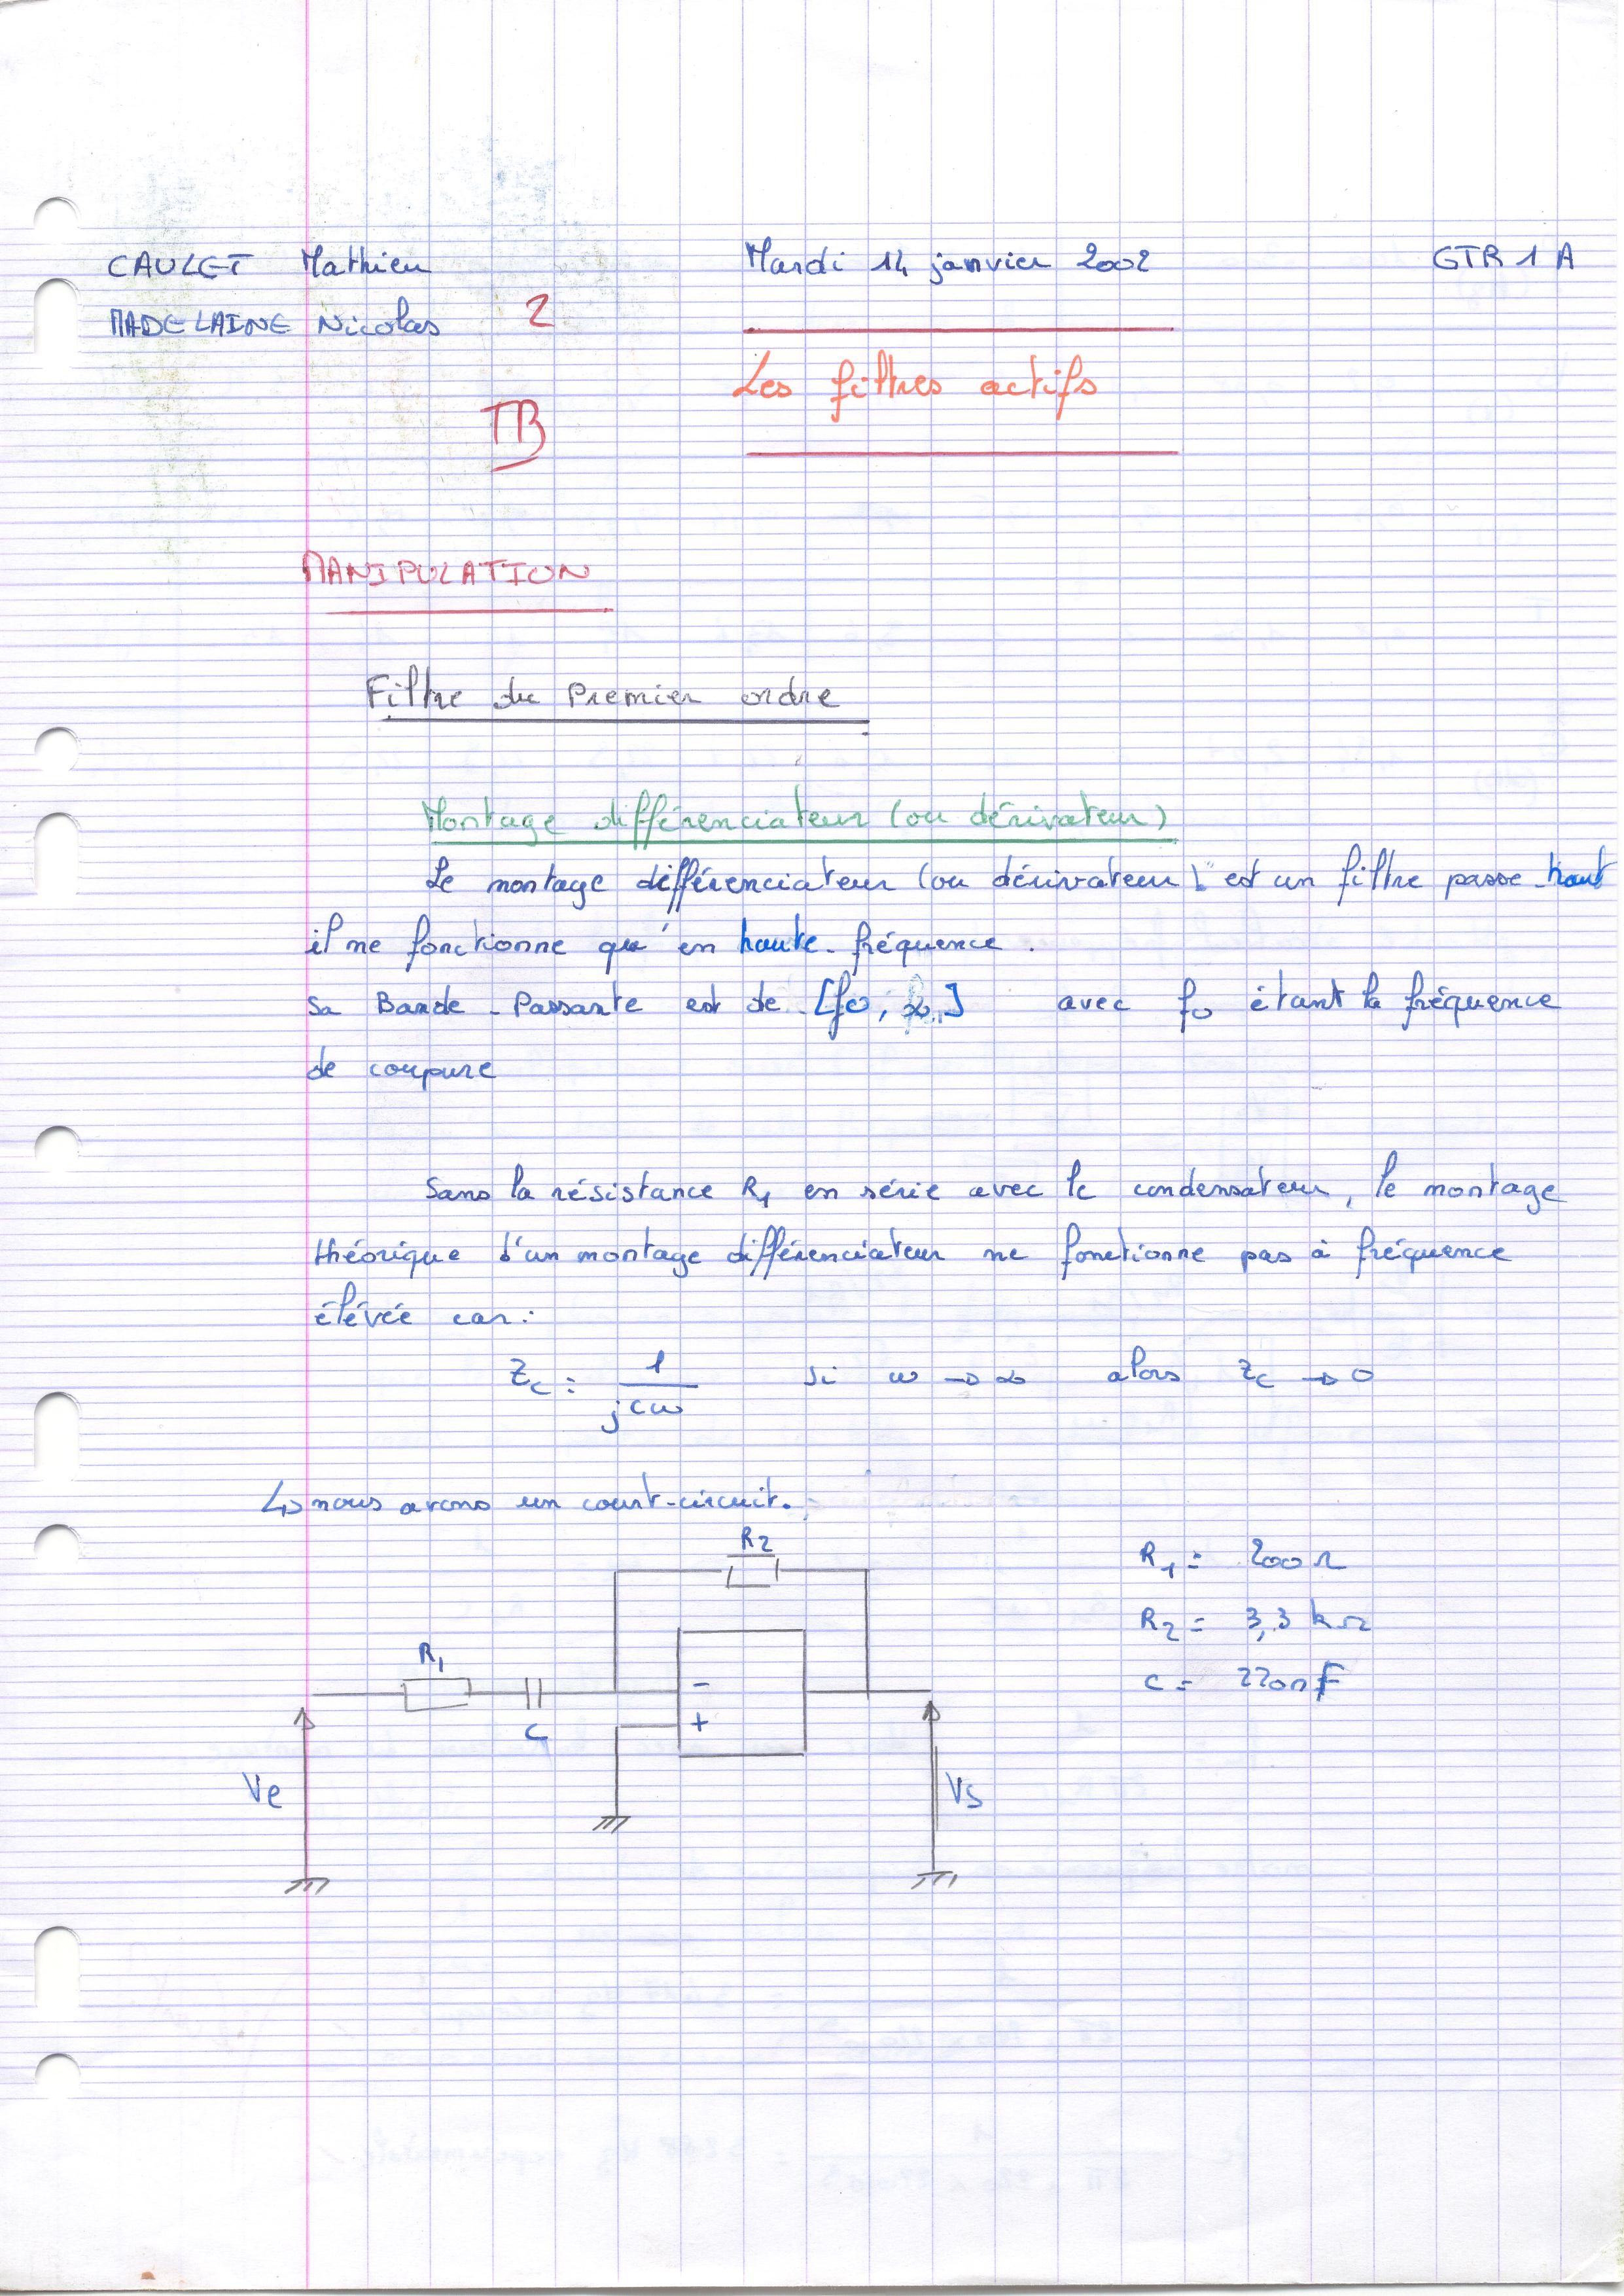 CAULET Mathieu Mardi 14 janvier 2002 GTR 1 A
MADELAINE Nicolas 2
Les filtres actifs
TB
MANIPULATION
Filtre du Premier ordre
Montage différenciateur (ou dérivateur)
Le montage différenciateur (ou dérivateur) est un filtre passe-haut
il ne fonctionne qu'en haute-fréquence.
sa Bande-Passante est de [f0, ∞] avec f0 étant la fréquence
de coupure
Sans la résistance R1 en série avec le condensateur, le montage
théorique d'un montage différenciateur ne fonctionne pas à fréquence
élévée car:
Zc = 1/jCω si ω → ∞ alors Zc → 0
↳ nous avons un court-circuit.
R2
R1 = 200 Ω
R2 = 3,3 kΩ
R1
C = 220nF
-
+
C
Ve
Vs